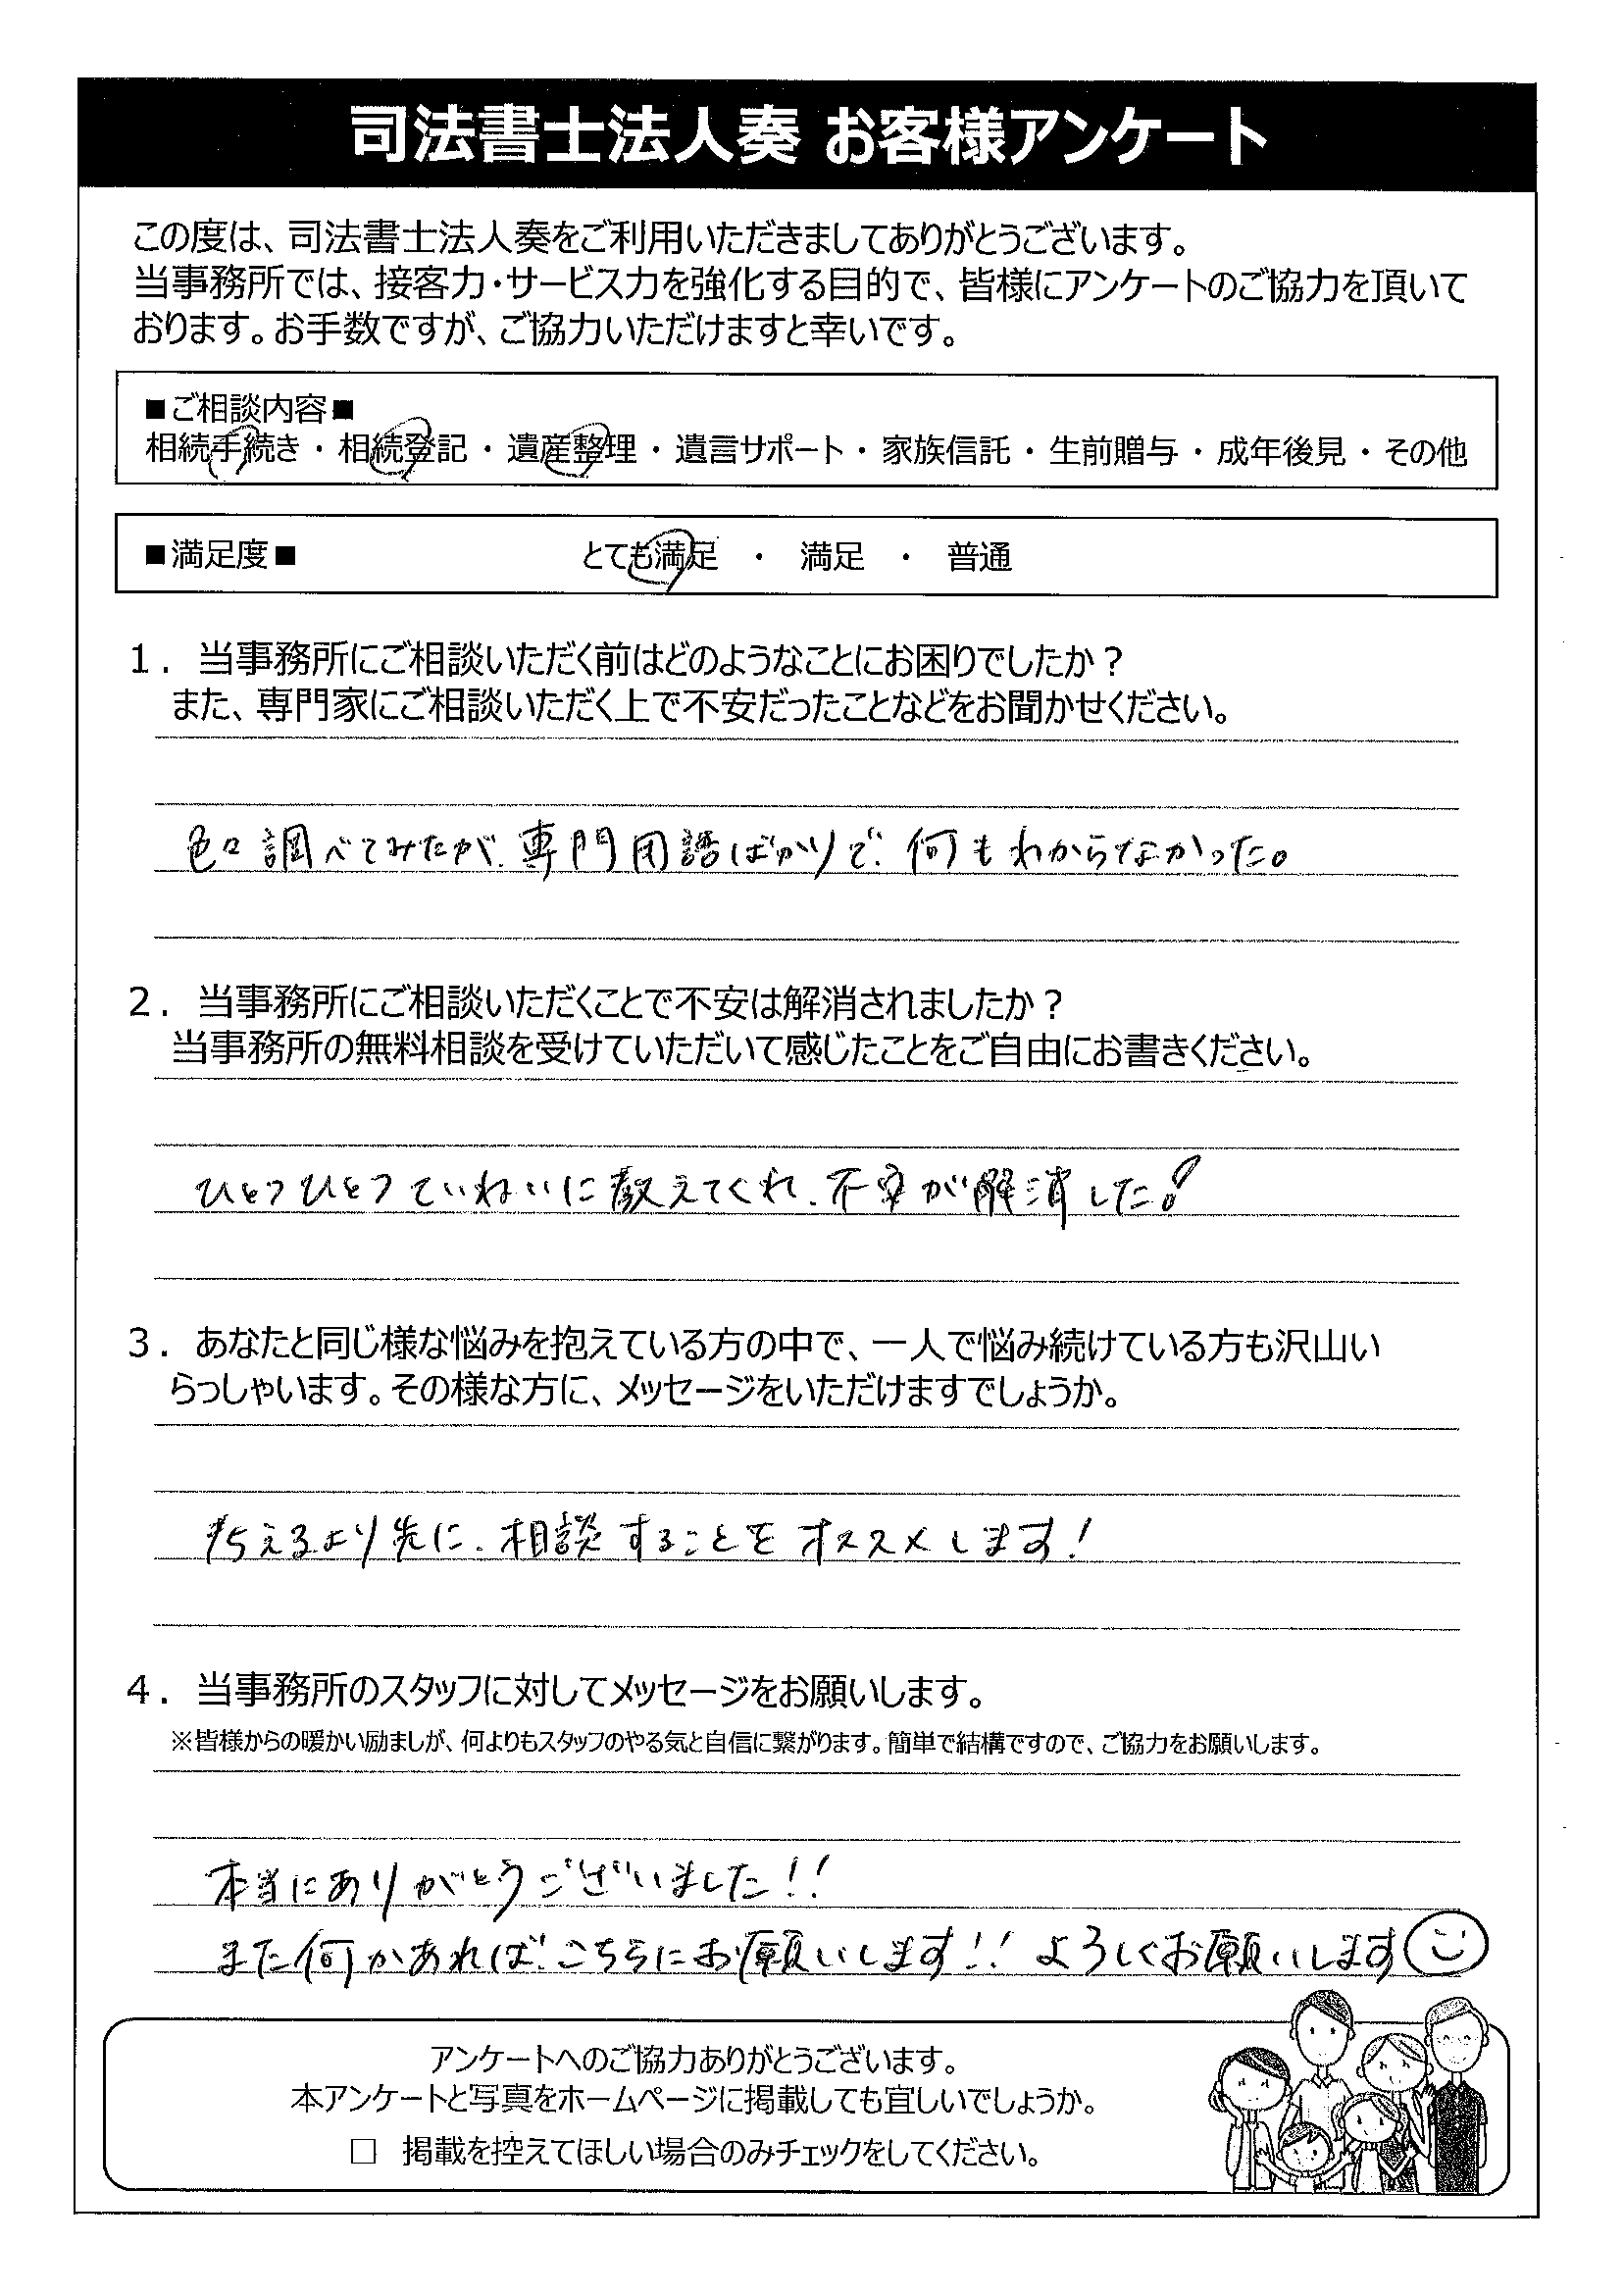 司法書士法人奏 お客様アンケート
この度は、司法書士法人奏をご利用いただきましてありがとうございます。
当事務所では、接客力・サービス力を強化する目的で、皆様にアンケートのご協力を頂いて
おります。お手数ですが、ご協力いただけますと幸いです。
■ご相談内容■
相続手続き・相続登記・遺産整理・遺言サポート・家族信託・生前贈与・成年後見・その他
■満足度■ とても満足 ・ 満足 ・ 普通
1．当事務所にご相談いただく前はどのようなことにお困りでしたか？
また、専門家にご相談いただく上で不安だったことなどをお聞かせください。
色々調べてみたが、専門用語ばかりで、何もわからなかった。
2．当事務所にご相談いただくことで不安は解消されましたか？
当事務所の無料相談を受けていただいて感じたことをご自由にお書きください。
ひとつひとつていねいに教えてくれ、不安が解消した！
3．あなたと同じ様な悩みを抱えている方の中で、一人で悩み続けている方も沢山い
らっしゃいます。その様な方に、メッセージをいただけますでしょうか。
考えるより先に、相談することをオススメします！
4．当事務所のスタッフに対してメッセージをお願いします。
※皆様からの暖かい励ましが、何よりもスタッフのやる気と自信に繋がります。簡単で結構ですので、ご協力をお願いします。
本当にありがとうございました！！
また何かあれば、こちらにお願いします！！よろしくお願いします
アンケートへのご協力ありがとうございます。
本アンケートと写真をホームページに掲載しても宜しいでしょうか。
□ 掲載を控えてほしい場合のみチェックをしてください。